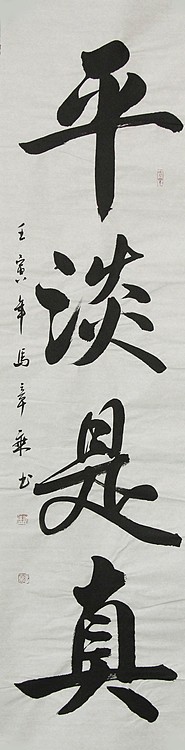 平淡是真
壬寅年马章乘书